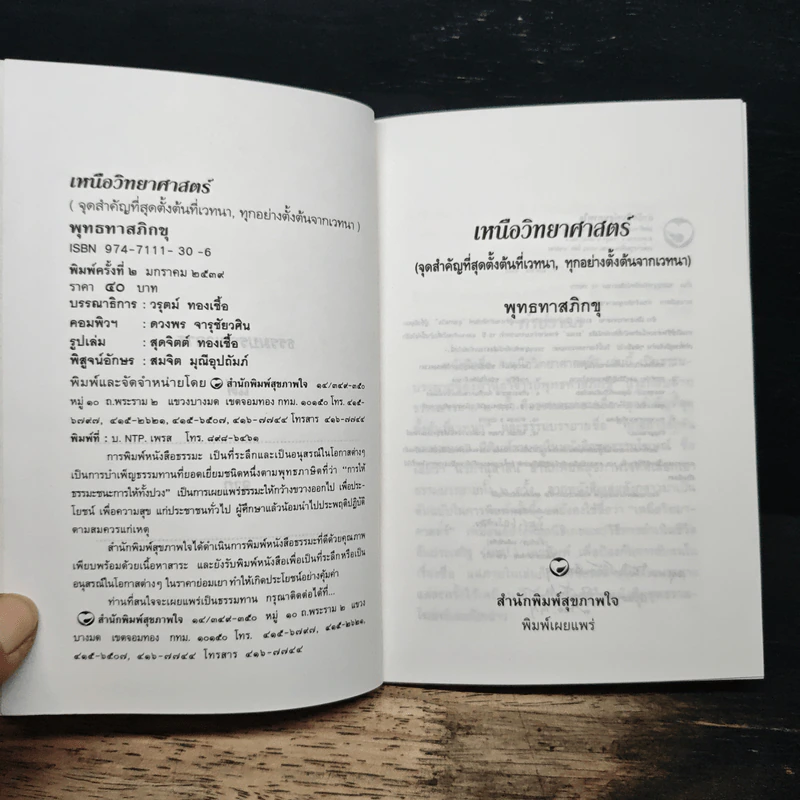 เหนือวิทยาศาสตร์
( จุดสำคัญที่สุดตั้งต้นที่เวทนา, ทุกอย่างตั้งต้นจากเวทนา )
พุทธทาสภิกขุ
ISBN 974-7111- 30 -6
พิมพ์ครั้งที่ ๒ มกราคม ๒๕๓๙
ราคา ๔๐ บาท
บรรณาธิการ : วรุตม์ ทองเชื้อ
คอมพิวฯ : ดวงพร จารุชัยวศิน
รูปเล่ม : สุดจิตต์ ทองเชื้อ
พิสูจน์อักษร : สมจิต มุณีอุปถัมภ์
พิมพ์และจัดจำหน่ายโดย สำนักพิมพ์สุขภาพใจ ๑๔/๓๔๙-๓๕๐
หมู่ ๑๐ ถ.พระราม ๒ แขวงบางมด เขตจอมทอง กทม. ๑๐๑๕๐ โทร. ๔๑๕-
๖๗๙๗, ๔๑๕-๒๖๒๑, ๔๑๕-๖๕๐๗, ๔๑๖-๗๗๔๔ โทรสาร ๔๑๖-๗๗๔๔
พิมพ์ที่ : บ. NTP. เพรส โทร. ๘๙๘-๖๔๖๑
การพิมพ์หนังสือธรรมะ เป็นที่ระลึกและเป็นอนุสรณ์ในโอกาสต่างๆ
เป็นการบำเพ็ญธรรมทานที่ยอดเยี่ยมชนิดหนึ่งตามพุทธภาษิตที่ว่า "การให้
ธรรมะชนะการให้ทั้งปวง" เป็นการเผยแพร่ธรรมะให้กว้างขวางออกไป เพื่อประ-
โยชน์ เพื่อความสุข แก่ประชาชนทั่วไป ผู้ศึกษาแล้วน้อมนำไปประพฤติปฏิบัติ
ตามสมควรแก่เหตุ
สำนักพิมพ์สุขภาพใจได้ดำเนินการพิมพ์หนังสือธรรมะที่ดีด้วยคุณภาพ
เพียบพร้อมด้วยเนื้อหาสาระ และยังรับพิมพ์หนังสือเพื่อเป็นที่ระลึกหรือเป็น
อนุสรณ์ในโอกาสต่างๆ ในราคาย่อมเยา ทำให้เกิดประโยชน์อย่างคุ้มค่า
ท่านที่สนใจจะเผยแพร่เป็นธรรมทาน กรุณาติดต่อได้ที่...
สำนักพิมพ์สุขภาพใจ ๑๔/๓๔๙-๓๕๐ หมู่ ๑๐ ถ.พระราม ๒ แขวง
บางมด เขตจอมทอง กทม. ๑๐๑๕๐ โทร. ๔๑๕-๖๗๙๗, ๔๑๕-๒๖๒๑,
๔๑๕-๖๕๐๗, ๔๑๖-๗๗๔๔ โทรสาร ๔๑๖-๗๗๔๔
เหนือวิทยาศาสตร์
(จุดสำคัญที่สุดตั้งต้นที่เวทนา, ทุกอย่างตั้งต้นจากเวทนา)
พุทธทาสภิกขุ
สำนักพิมพ์สุขภาพใจ
พิมพ์เผยแพร่